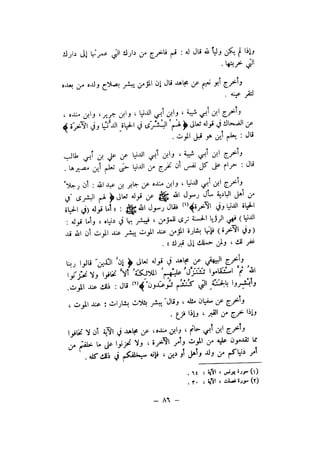 وإذا لم يكن ولياً لله قال له : قم فاخرج من دارك التي عمرتها إلى دارك
التي خربتها .
وأخرج أبو نعيم عن مجاهد قال إن المؤمن يبشر بصلاح ولده من بعده
لتقر عينه .
وأخرج ابن أبي شيبة ، وابن أبي الدنيا ، وابن جرير ، وابن منده ،
عن الضحاك في قوله تعالى ﴿ لهم البشرى في الحياة الدنيا وفي الآخرة ﴾
قال : يعلم أين هو قبل الموت .
وأخرج ابن أبي شيبة ، وابن أبي الدنيا عن علي بن أبي طالب
قال : حرام على كل نفس أن تخرج من الدنيا حتى تعلم أين مصيرها .
وأخرج ابن أبي الدنيا ، وابن منده عن جابر بن عبد الله : أن رجلاً
من أهل البادية سأل رسول الله ﷺ عن قوله تعالى ﴿ لهم البشرى في
الحياة الدنيا وفي الآخرة ﴾(١) فقال رسول الله ﷺ : « أما قوله (في الحياة
الدنيا ) فهي الرؤيا الحسنة ترى للمؤمن ، فيبشر بها في دنياه ، وأما قوله :
( وفي الآخرة ) فإنها بشارة المؤمن عند الموت يبشر عند الموت أن الله قد
غفر لك ، ولمن حملك إلى قبرك » .
وأخرج البيهقي عن مجاهد في قوله تعالى ﴿ إن الذين قالوا ربنا
الله ثم استقاموا تتنزل عليهم الملائكة ألا تخافوا ولا تحزنوا
وأبشروا بالجنة التي كنتم توعدون ﴾(٢) قال : ذلك عند الموت .
وأخرج عن سفيان مثله ، وقال يبشر بثلاث بشارات : عند الموت ،
وإذا خرج من القبر ، وإذا فزع .
وأخرج ابن أبي حاتم ، وابن منده ، عن مجاهد في الآية أن لا تخافوا
مما تقدمون عليه من الموت وأمر الآخرة ، ولا تحزنوا على ما خلفتم من
أمر دنياكم من ولد وأهل أو دين ، فإنه سيخلفكم في ذلك كله .
(١) سورة يونس ، الآية : ٦٤ .
(٢) سورة فصلت ، الآية : ٣٠ .
– ٨٦ –